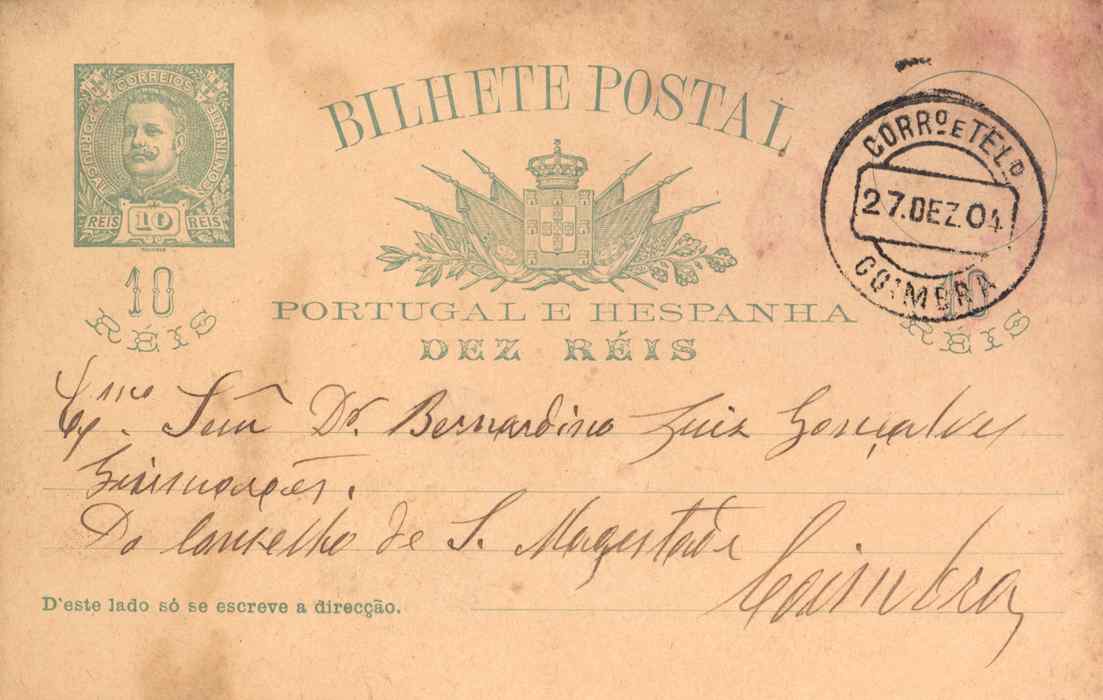 CORREIOS
PORTUGAL CONTINENTE
REIS 10 REIS
10
RÉIS
BILHETE POSTAL
PORTUGAL E HESPANHA
DEZ RÉIS
CORRº E TELº
27.DEZ.04
COIMBRA
10
RÉIS
Exmo. Snr. Dr. Bernardino Luiz Gonçalves
Guimarães.
Do Conselho de S. Magestade
Coimbra
D'este lado só se escreve a direcção.